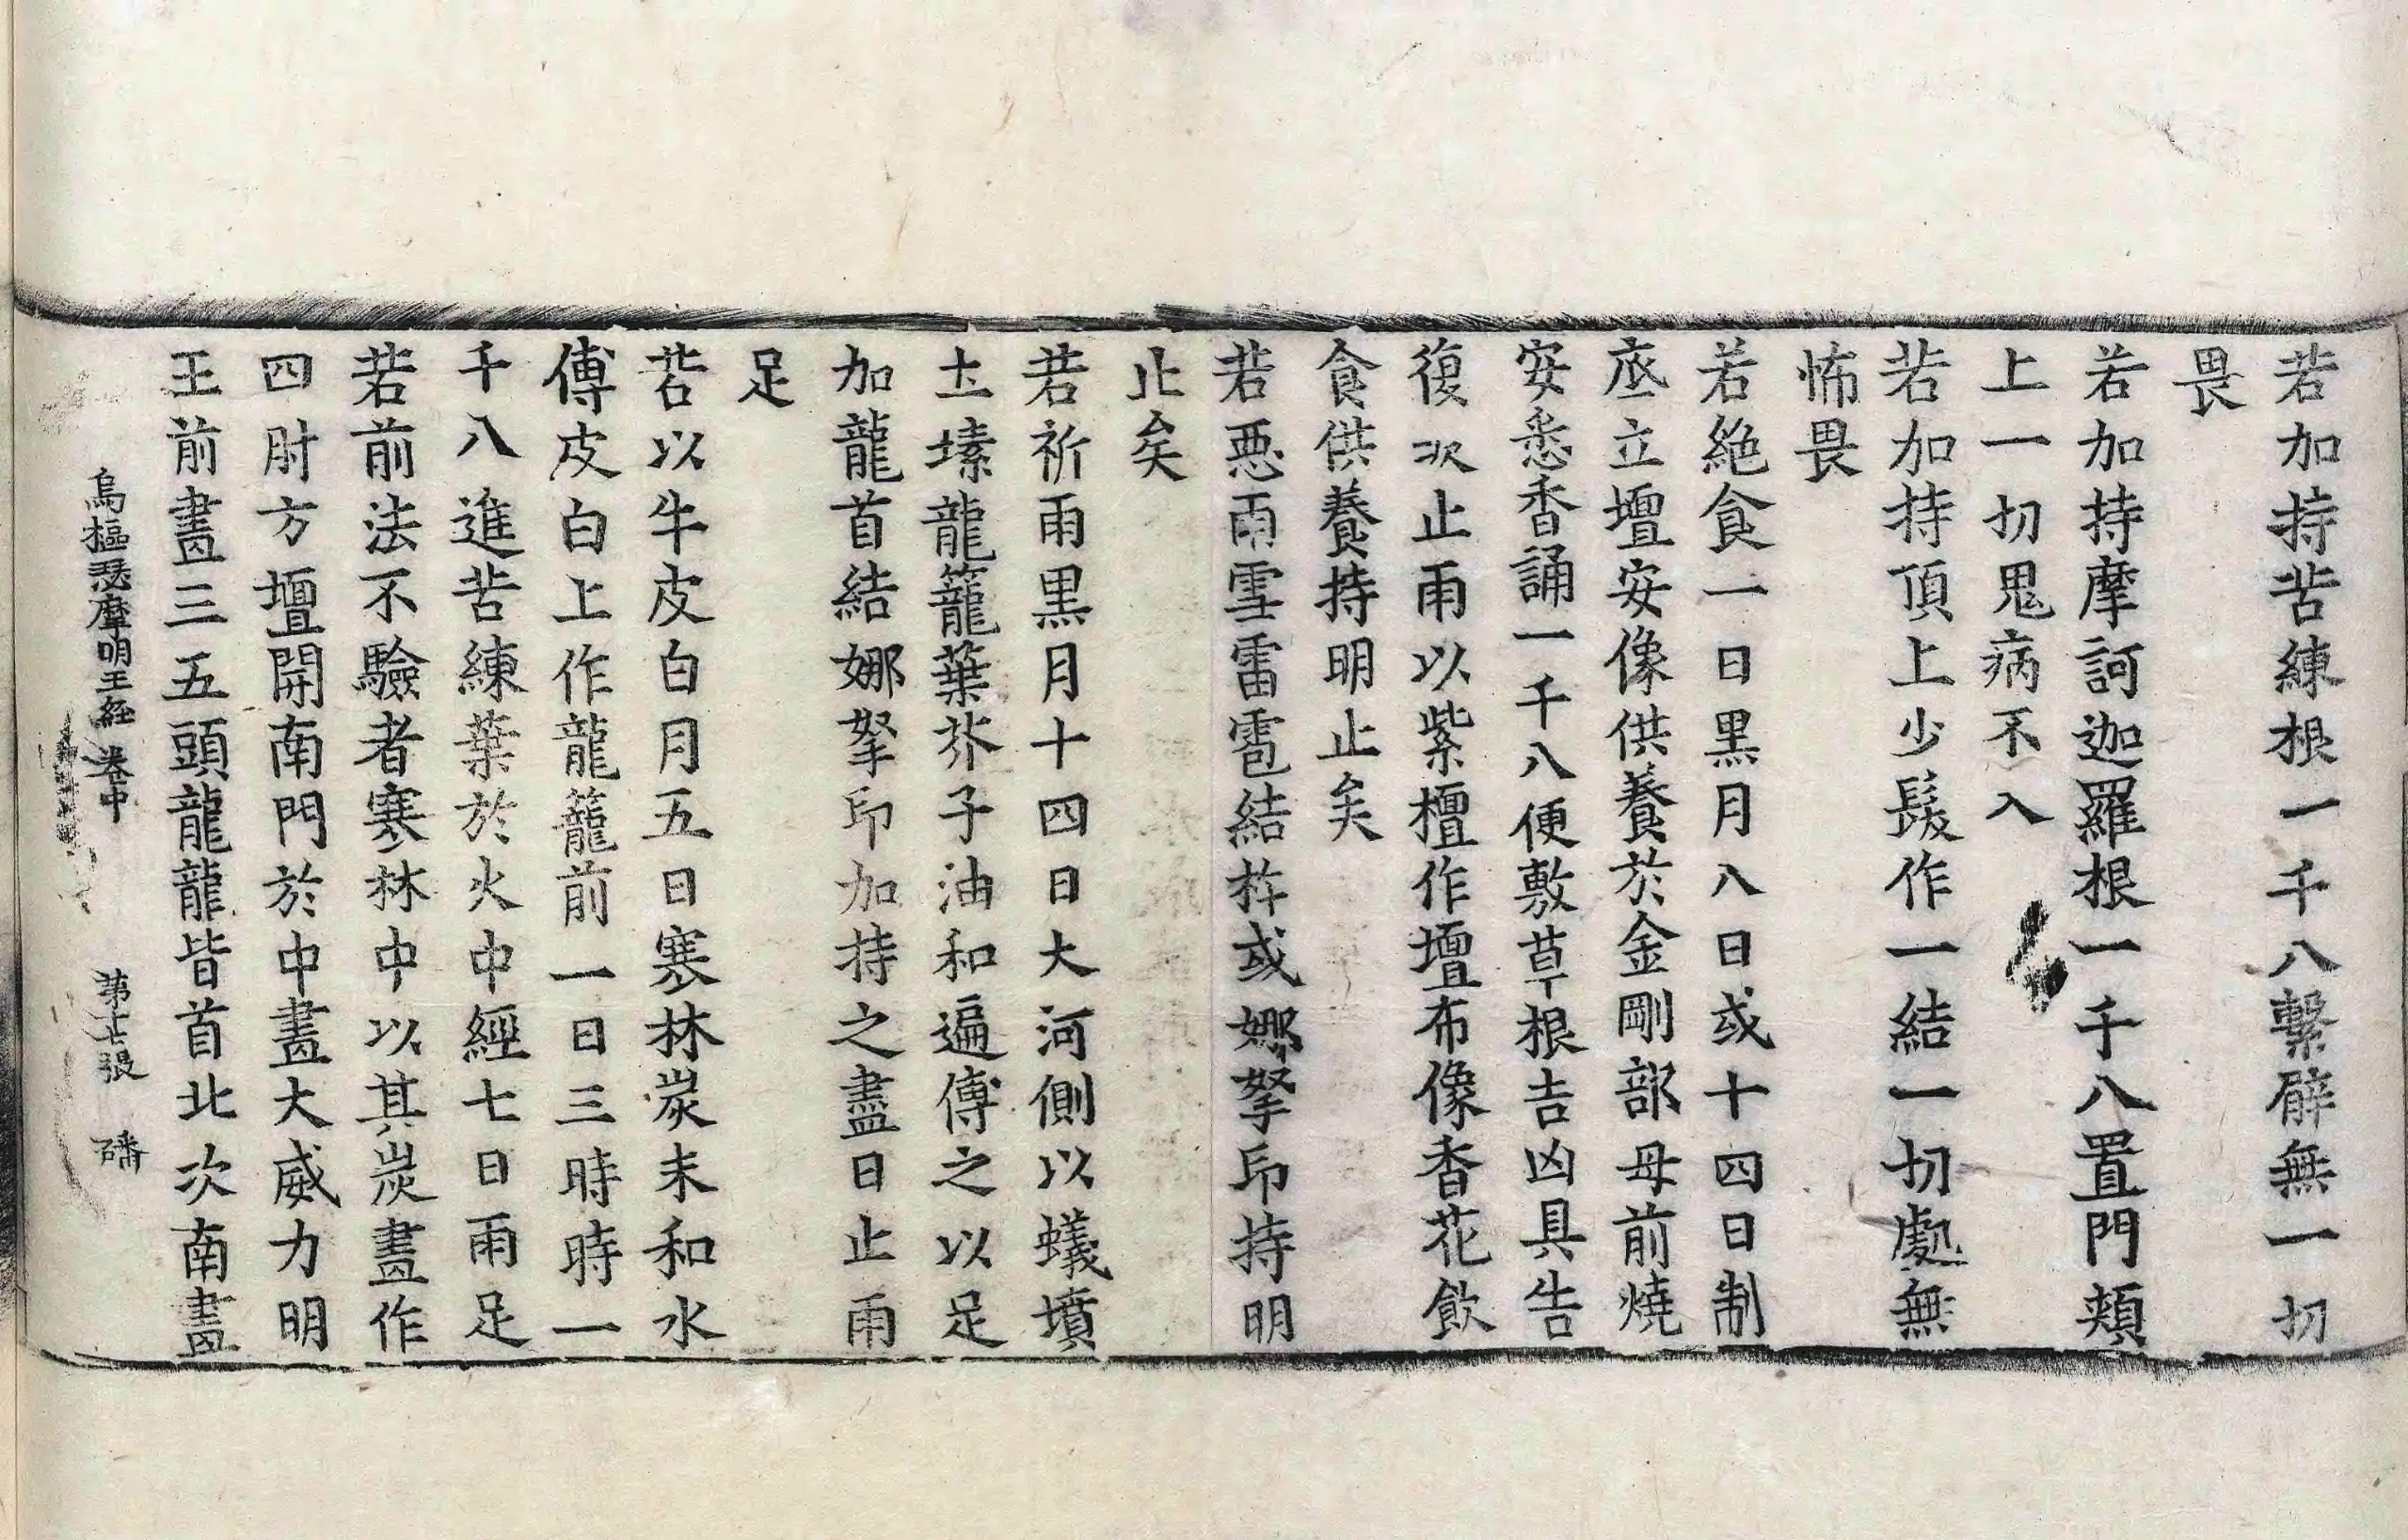 若加持苦練根一千八繫臂無一切
畏
若加持摩訶迦羅根一千八置門頰
上一切鬼病不入
若加持頂上少髮作一結一切處無
怖畏
若絶食一日黒月八日或十四日制
底立壇安像供養於金剛部母前燒
安悉香誦一千八便敷草根吉凶具告
復次止雨以紫檀作壇布像香花飲
食供養持明止矣
若惡雨雪雷雹結杵或娜拏印持明
止矣
若祈雨黒月十四日大河側以蟻墳
土塐龍籠葉芥子油和遍傅之以足
加龍首結娜拏印加持之盡日止雨
足
若以牛皮白月五日寒林炭末和水
傅皮白上作龍籠前一日三時時一
千八進苦練葉於火中經七日雨足
若前法不驗者寒林中以其炭畫作
四肘方壇開南門於中畫大威力明
王前畫三五頭龍龍皆首北次南畫
烏樞瑟摩明王經 卷中 第十七張 磻